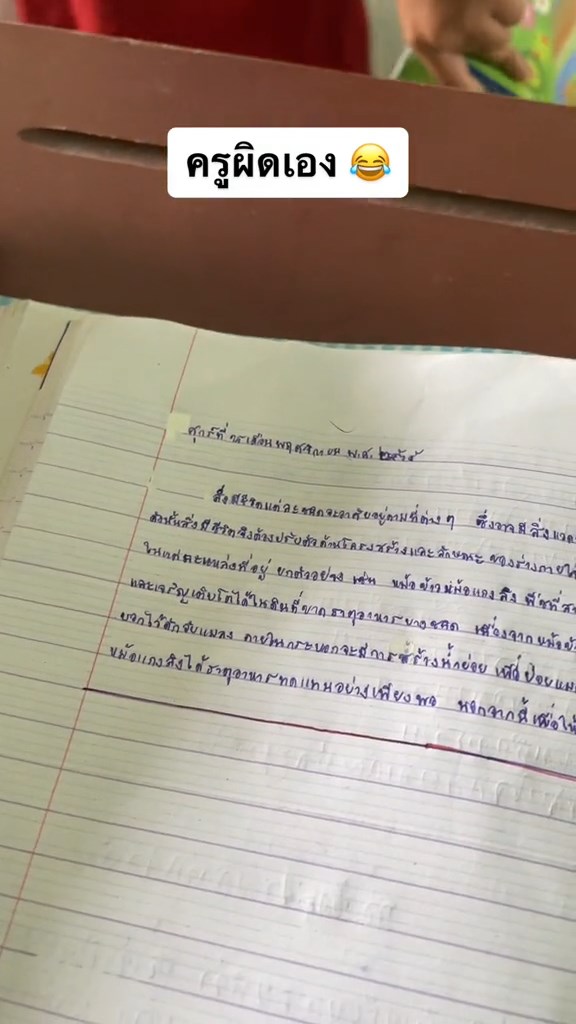 ครูผิดเอง 😂
ศุกร์ที่ เดือน พฤศจิกายน พ.ศ.
สิ่งมีชีวิตแต่ละชนิดจะอาศัยอยู่ตามที่ต่างๆ ซึ่งอาจมีสิ่งแวด
ดังนั้นสิ่งมีชีวิตจึงต้องปรับตัวด้านโครงสร้างและลักษณะของร่างกายให้
ในแต่ละแหล่งที่อยู่ ยกตัวอย่าง เช่น หม้อข้าวหม้อแกงลิง พืชที่
และเจริญเติบโตได้ในดินที่ขาดธาตุอาหารบางชนิด เนื่องจากหม้อข้
ไว้ดักจับแมลง ภายในกระบอกจะมีการสร้างน้ำย่อย เพื่อย่อยแม
หม้อแกงลิงได้ธาตุอาหารทดแทนอย่างเพียงพอ นอกจากนี้เพื่อให้